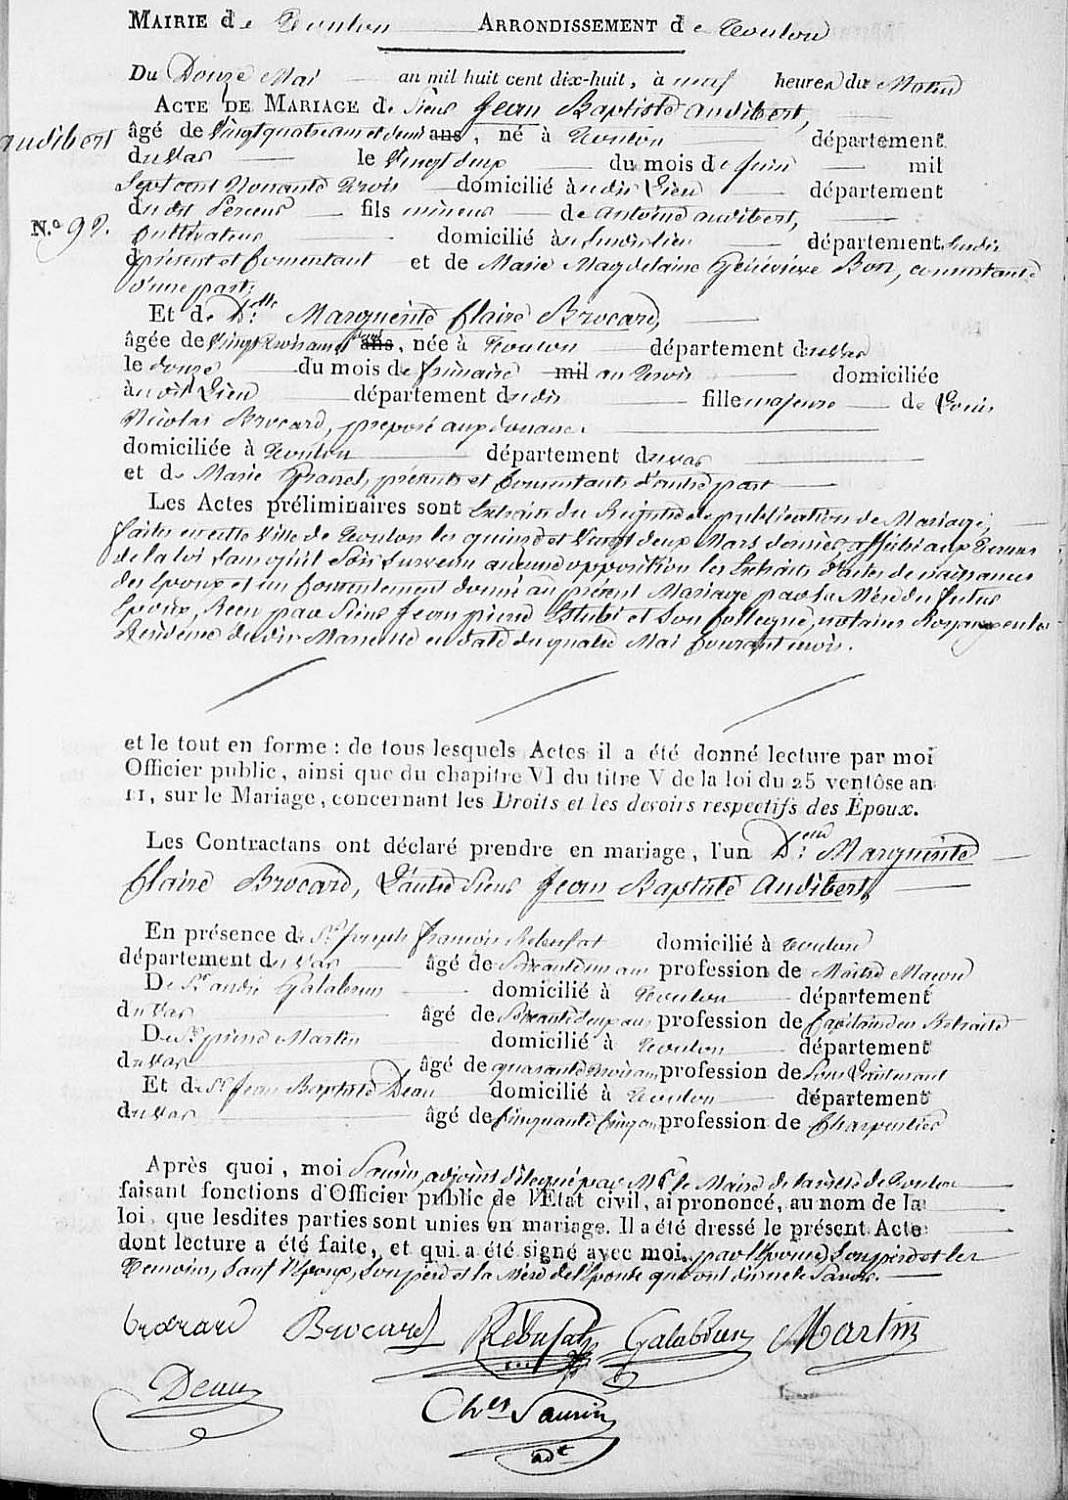 MAIRIE de Toulon ARRONDISSEMENT de Toulon
Du Douze Mai au mil huit cent dix-huit, à neuf heures du Matin
ACTE DE MARIAGE de Sieur Jean Baptiste Audibert,
audibert
âgé de Vingt quatre ans et demi ans, né à Toulon département
du Var le Vingt deux du mois de Juin mil
Sept cent Nonante Trois domicilié audit Lieu département
du dit fils mineur de Antoine audibert,
N.º 92.
Cultivateur domicilié au Susdit lieu département Susdit
présent et Consentant et de Marie Magdelaine Geneviève Bon, consentante
d'une part;
Et de D.lle Marguerite Claire Brocard,
âgée de Vingt Trois ans et demi ans, née à Toulon département du Var
le douze du mois de frimaire mil an Trois domiciliée
au dit Lieu département du dit fille majeure de Louis
Nicolas Brocard, préposé aux douanes
domiciliée à Toulon département du var
et de Marie Granet, présents et Consentants d'autre part
Les Actes préliminaires sont Extraits du Registre de publication de Mariage,
faites en cette Ville de Toulon les quinze et Vingt deux Mars dernier, affichée aux Termes
de la loi Sans qu'il Soit Survenu aucune opposition les Extraits d'actes de naissances
des Epoux et un Consentement donné au présent Mariage par la Mère du futur
Epoux, Reçu par Sieur Jean pierre et Son Collegue, notaires Royaux en la
Résidence de Marseille en date du quatre Mai Courant mois.
et le tout en forme : de tous lesquels Actes il a été donné lecture par moi
Officier public, ainsi que du chapitre VI du titre V de la loi du 25 ventôse an
11, sur le Mariage, concernant les Droits et les devoirs respectifs des Époux.
Les Contractans ont déclaré prendre en mariage, l'un D.elle Marguerite
Claire Brocard, L'autre Sieur Jean Baptiste Audibert,
En présence de S.r Joseph François Rebufat domicilié à Toulon
département du Var âgé de Soixante un ans profession de Maître Maçon
De S.r andré Galabrun domicilié à Toulon département
du Var âgé de Soixante deux ans profession de Capitaine en Retraite
De S.r pierre Martin domicilié à Toulon département
du Var âgé de quarante trois ans profession de Sous Lieutenant
Et de S.r Jean Baptiste Deau domicilié à Toulon département
du Var âgé de Cinquante Cinq ans profession de Charpentier
Après quoi, moi Saurin, adjoint délégué par Mr. le Maire de la ville de Toulon
faisant fonctions d'Officier public de l'État civil, ai prononcé, au nom de la
loi, que lesdites parties sont unies en mariage. Il a été dressé le présent Acte
dont lecture a été faite, et qui a été signé avec moi, par l'Epouse, Son père et les
Témoins, Sauf l'Epoux, Son père et la Mère de l'Epouse qui ont dit ne le Savoir.
brocard Brocard Rebufat Galabrun Martin
Deau
Ch.es Saurin
adt